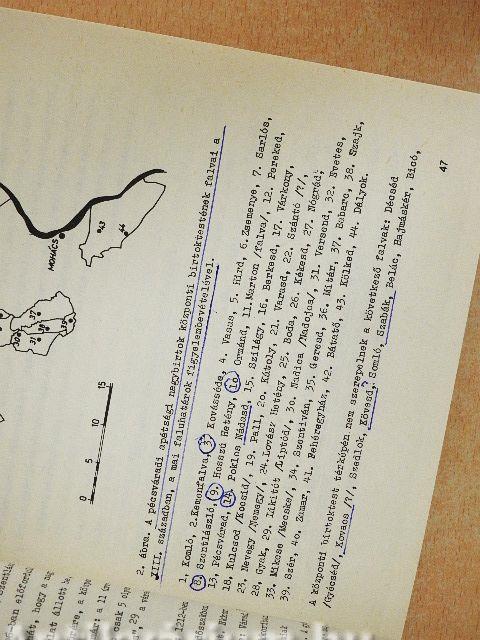 MOHÁCS
43
44
37
18
31
0 5 10 15
2. ábra. A pécsváradi apátsági nagybirtok központi birtoktestének falvai a
XIII. században, a mai faluhatárok figyelembevételével.
1, Komló, 2.Kemenfalva, 3. Kovásséde, 4. Vasus, 5. Hird, 6.Zsemenye, 7. Sarlós,
8. Szentlászló, 9. Hosszú Hetény, 10. Ormánd, 11.Marton /falva/, 12. Pereked,
13, Pécsvárad, 14. Poklos Nádasd, 15. Szilágy, 16. Berkesd, 17. Várkony,
18, Kulcsod /Kocsid/, 19. Pall, 20. Kátoly, 21. Varasd, 22. Szántó /?/,
23, Nevegy /Nemegy/, 24.Lovász Hetény, 25. Boda, 26. Kékesd, 27. Nógrád,
28, Gyak, 29. Likitót /Liptód/, 30. Nadica /Nadojca/, 31. Versend, 32. Evetes,
33. Mikcse /Mecske/, 34. Szentiván, 35. Geresd, 36. Mitár, 37. Babarc, 38. Szajk,
39. Szér, 40. Zamar, 41. Fehéregyház, 42. Bátatő, 43. Kölked, 44. Dályok.
A központi birtoktest térképén nem szerepelnek a következő falvak: Décséd
/Gyécséd/, Kovács /?/, Szedlok, Kövesd, Somló, Szabák, Belác, Hajmáskér, Bicó,
47